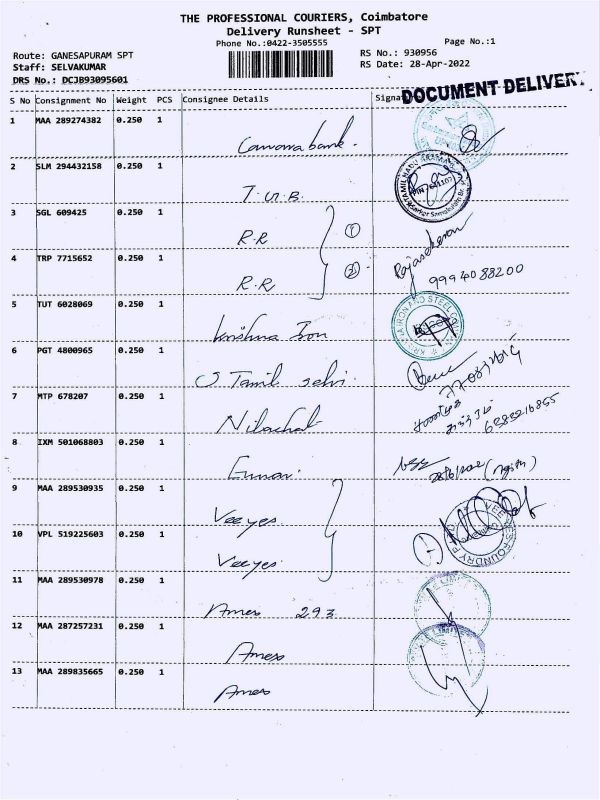 THE PROFESSIONAL COURIERS, Coimbatore
Delivery Runsheet - SPT
Phone No.:0422-3505555
Page No.:1
Route: GANESAPURAM SPT
RS No.: 930956
Staff: SELVAKUMAR
RS Date: 28-Apr-2022
DRS No.: DCJB93095601
DOCUMENT DELIVER
S No Consignment No Weight PCS Consignee Details
1 MAA 289274382 0.250 1
Canara bank.
2 SLM 294432158 0.250 1
T.U.B.
3 SGL 609425 0.250 1
R.R ①
4 TRP 7715652 0.250 1
R.R ② Rajasekaran
9994088200
5 TUT 6028069 0.250 1
Krishna Iron
6 PGT 4800965 0.250 1
Tamil selvi
7 MTP 678207 0.250 1
Nilachal
6 8 IXM 501068803 0.250 1
9 MAA 289530935 0.250 1
Veeyes
10 VPL 519225603 0.250 1
Veeyes
11 MAA 289530978 0.250 1
Ames 293
12 MAA 287257231 0.250 1
Ames
13 MAA 289835665 0.250 1
Ames